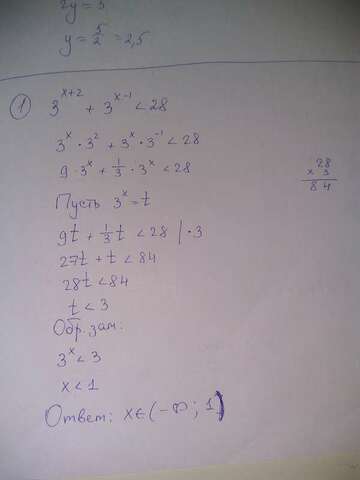 2y = 5
y = 5/2 = 2,5
① 3^{x+2} + 3^{x-1} < 28
3^x · 3^2 + 3^x · 3^{-1} < 28
9 · 3^x + 1/3 · 3^x < 28
28
× 3
84
Пусть 3^x = t
9t + 1/3 t < 28 | · 3
27t + t < 84
28t < 84
t < 3
Обр. зам.
3^x < 3
x < 1
Ответ: x ∈ (-∞; 1)